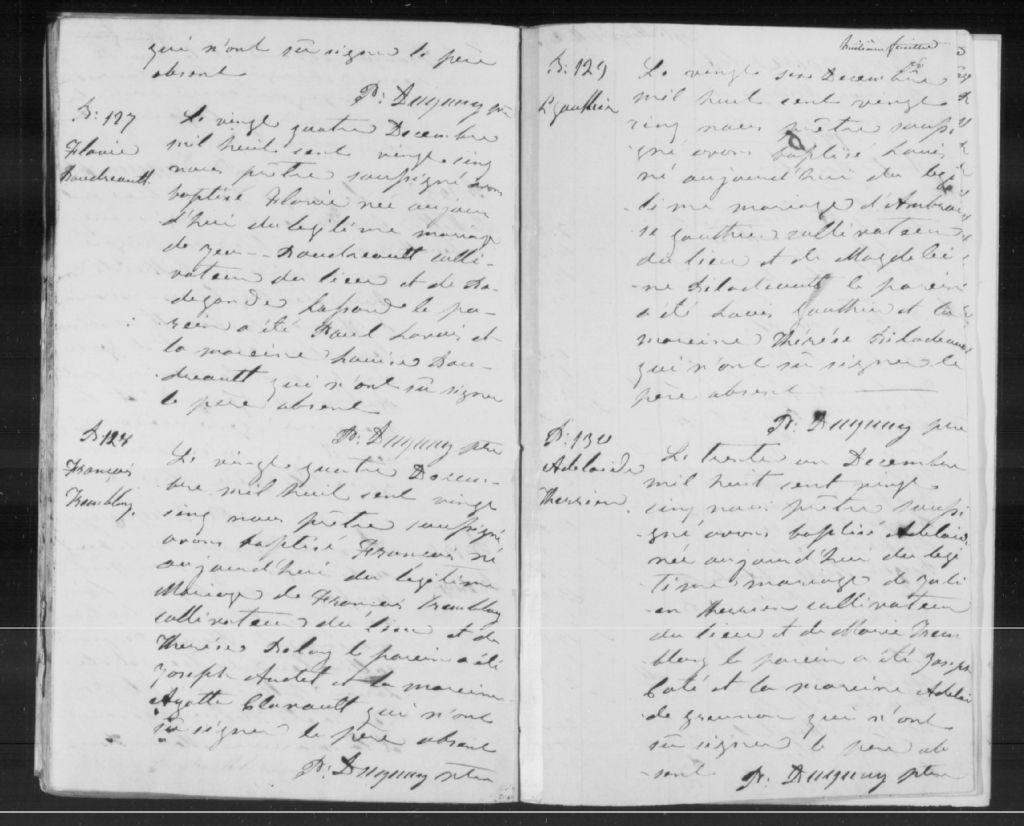 qui n'ont sû signer le père
absent
P: Duguay ptre
B: 127
Flavie
Boudreault
Le vingt quatre Decembre
mil huit cent vingt cinq
nous prêtre soussigné avons
baptisé Flavie née aujour
d'hui du legitime mariage
de Boudreault culti-
vateur du lieu et de
le pa-
rein a été Paul et
la mareine Louise Bou-
dreault qui n'ont sû signer
le père absent
P: Duguay ptre
B 128
François
Tremblay
Le vingt quatre Decem-
bre mil huit cent vingt
cinq nous prêtre soussigné
avons baptisé François né
aujourd'hui du legitime
Mariage de François Tremblay
cultivateur du lieu et de
Therése le parein a été
Joseph Audet et la mareine
Agathe qui n'ont
sû signer le père absent
P: Duguay ptre
huitième feuillet
B: 129
L Gauthier
Le vingt six Decembre
mil huit cent vingt
cinq nous prêtre soussi
gné avons baptisé Louis
né aujourd'hui du legi
time mariage d'Ambroi
se Gauthier cultivateur
du lieu et de Magdelei
ne Bilodeault le parein
a été Louis Gauthier et la
mareine Thérése Bilodeault
qui n'ont sû signer le
père absent
P: Duguay ptre
B: 130
Adelaide
Therrien
Le trente un Decembre
mil huit cent vingt
cinq nous prêtre soussi
gné avons baptisé Adelaide
née aujourd'hui du legi
time mariage de Juli
en Therrien cultivateur
du lieu et de Marie Trem
blay le parein a été Joseph
Coté et la mareine Adelai
de qui n'ont
sû signer le père ab
sent P: Duguay ptre